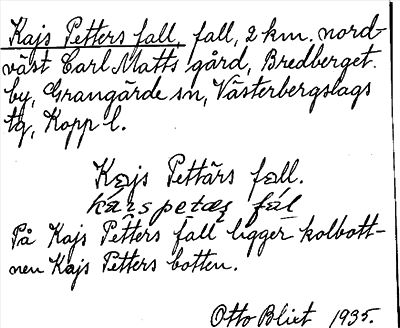 Kajs Petters fall, fall, 2 km. nord-
väst Carl Matts gård, Bredberget
by, Grangärde sn, Västerbergslags
tg, Kopp l.
Kajs Pettärs fall.
På Kajs Petters fall ligger kolbott-
nen Kajs Petters botten.
Otto Blixt 1935.